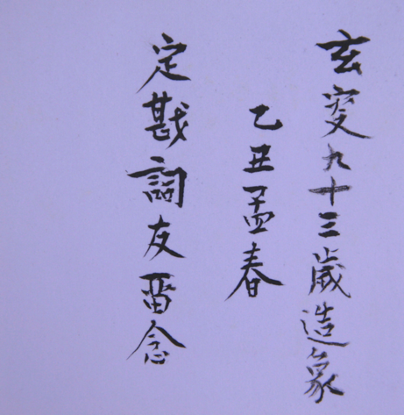 玄叟九十三歲造象
乙丑孟春
定戡詞友畱念